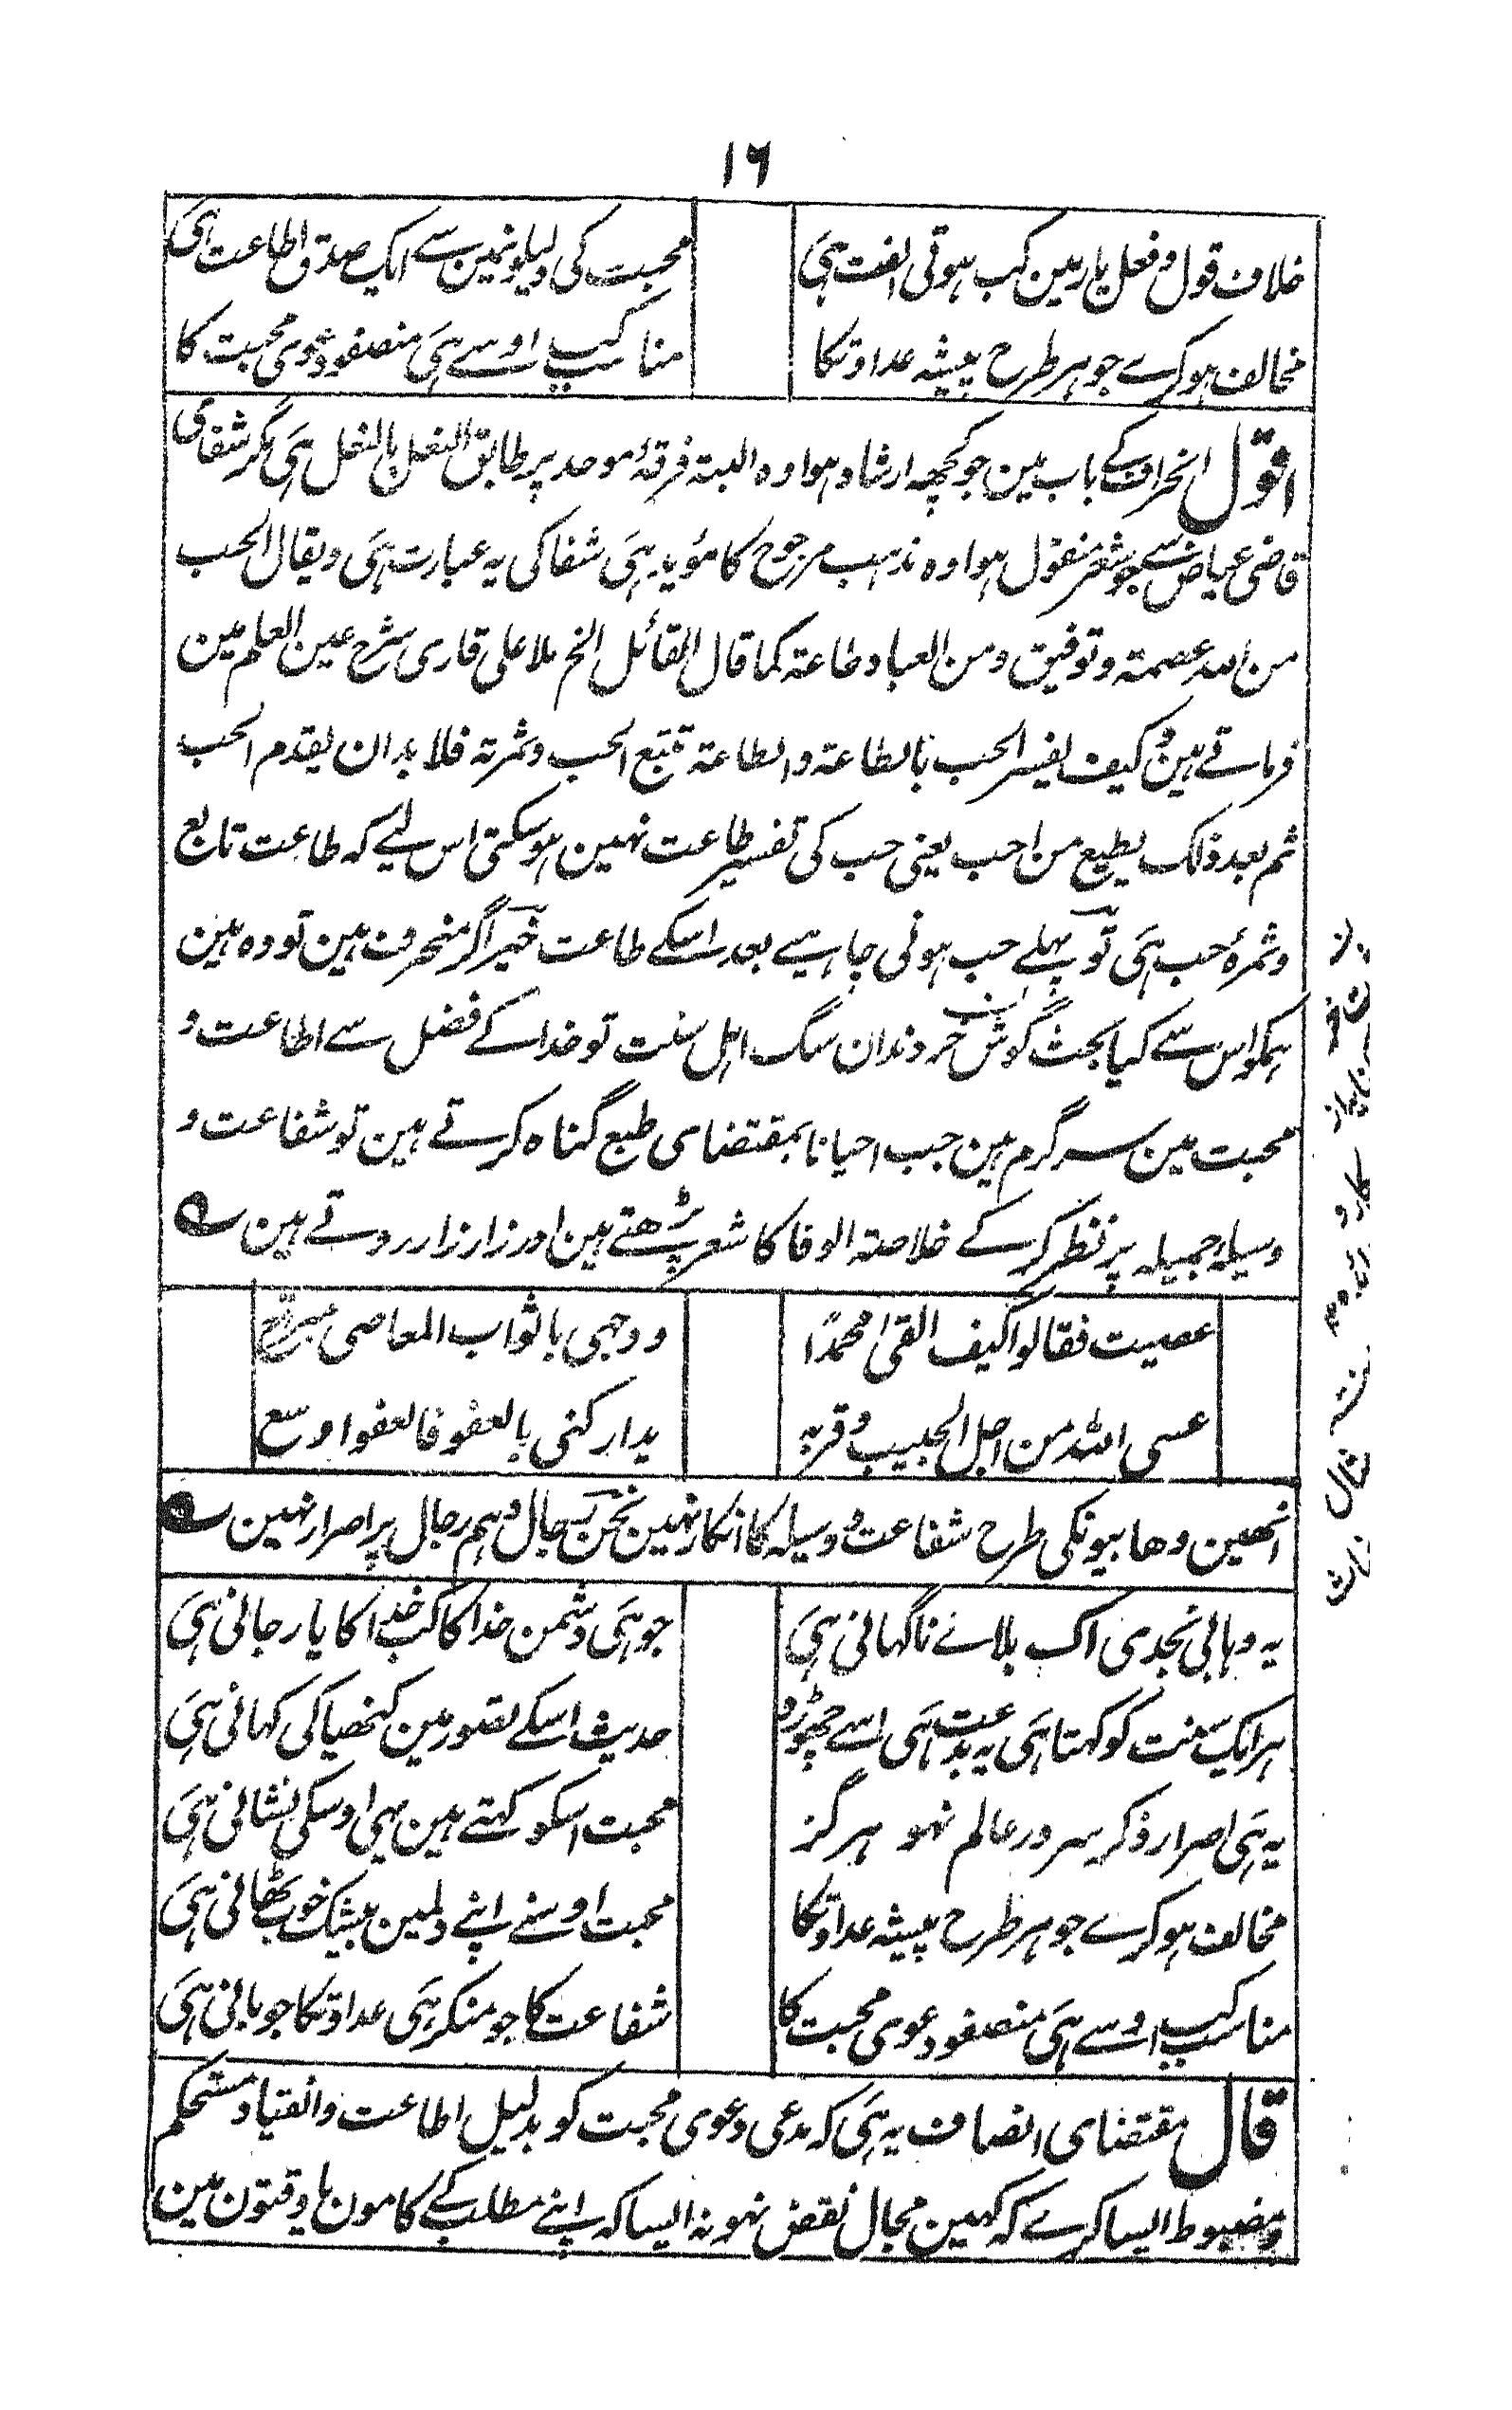 ١٦
خلاف قول و فعل یار مین کب ہوتی الفت ہی محبت کی دلیلونمین سے ایک صدق اطاعت ہی
مخالف ہو کرے جو ہر طرح پیشہ عداوتکا مناسب کب اوسے ہی منصفو دعوی محبت کا
اقول انحراف کے باب مین جو کچھہ ارشاد ہوا وہ البتہ فرقۂ موحد پر طابق النعل بالنعل ہی مگر شفای
قاضی عیاض سے جو شعر منقول ہوا وہ مذہب مرجوح کا مؤید ہی شفا کی یہ عبارت ہی ویقال الحب
من اللہ عصمتہ وتوفیق ومن العباد طاعة کما قال القائل الخ ملا علی قاری شرح عین العلم مین
فرماتے ہین وکیف یفسر الحب بالطاعة والطاعة تتبع الحب وثمرتہ فلا بد ان یقدم الحب
ثم بعد ذلک یطیع من احب یعنی حب کی تفسیر طاعت نہین ہو سکتی اس لیے کہ طاعت تابع
وثمرۂ حب ہی تو پہلے حب ہونی چاہیے بعد اسکے طاعت خیر اگر منحرف ہین تو وہ ہین
ہمکو اس سے کیا بحث گوش خر دندان سگ اہل سنت تو خدا کے فضل سے اطاعت و
محبت مین سرگرم ہین جب احیانا بمقتضای طبع گناہ کرتے ہین تو شفاعت و
وسیلہ جمیلہ پر نظر کر کے خلاصۃ الوفا کا شعر پڑھتے ہین اور زار زار روتے ہین
عصیت فقالوا کیف القیٰ محمدًا ووجہی باثواب المعاصی مبرقع
عسی اللہ من اجل الحبیب وقربہ یدارکنی بالعفو فالعفو اوسع
انھین وھابیونکی طرح شفاعت و وسیلہ کا انکار نہین نحن رجال وہم رجال پر اصرار نہین
یہ وہابی نجدی اک بلائے ناگہانی ہی جو ہی دشمن خدا کا کب خدا کا یار جانی ہی
ہر ایک سنت کو کہتا ہی یہ بدعت ہی اسے چھوڑو حدیث اسکے تصور مین کنھیا کی کہانی ہی
یہ ہی اصرار ذکر سرور عالم نہو ہرگز محبت اسکو کہتے ہین یہی اوسکی نشانی ہی
مخالف ہو کرے جو ہر طرح پیشہ عداوتکا محبت اوسنے اپنے دلمین بیشک خوب ٹھانی ہی
مناسب کب اوسے ہی منصفو دعوی محبت کا شفاعت کا جو منکر ہی عداوتکا جو بانی ہی
قال مقتضای انصاف یہ ہی کہ مدعی دعوی محبت کو بدلیل اطاعت وانقیاد مستحکم
ومضبوط ایسا کرے کہ کہین مجال نقض نہو نہ ایسا کہ اپنے مطلب کے کامون یا وقتون مین